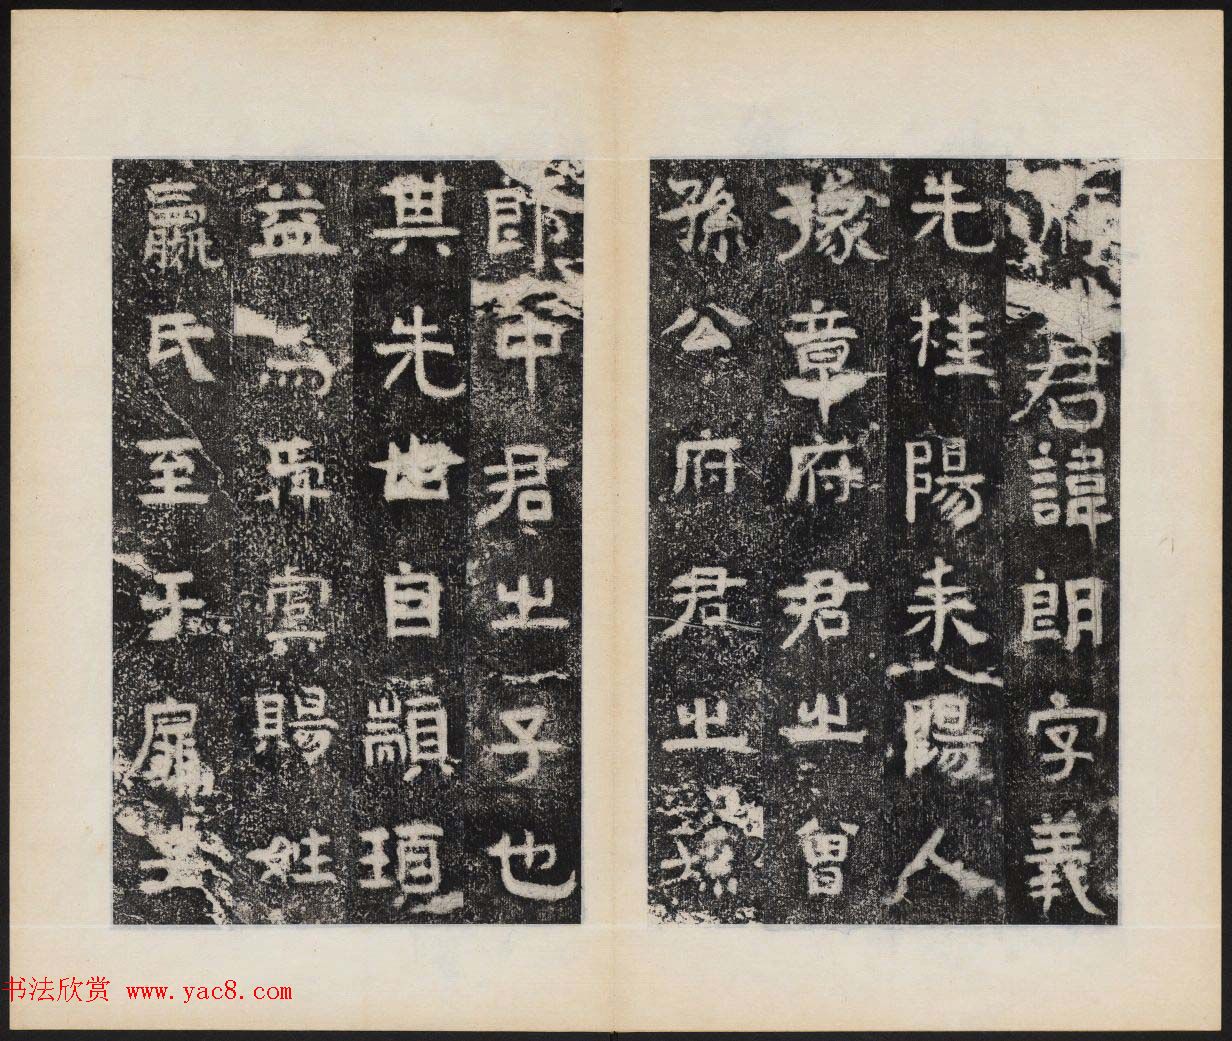 府君諱朗字義
先桂陽耒陽人
豫章府君之曾
孫公府君之孫
郎中君之子也
其先世自顓頊
益為舜虞賜姓
嬴氏至于扉
书法欣赏 www.yac8.com